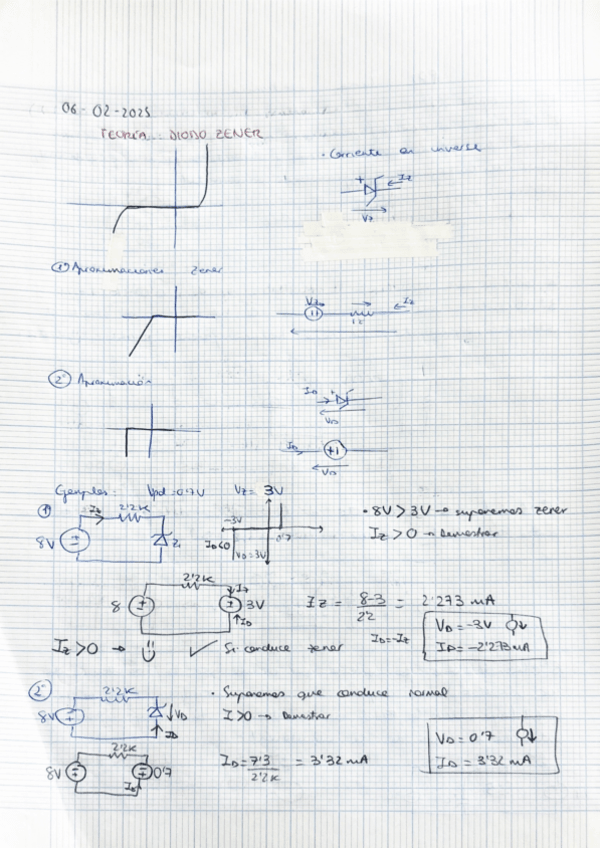 06-02-2025
TEORÍA: DIODO ZENER
· Corriente en inversa
+ Iz
Vz
① Aproximaciones zener
Vz Iz
② Aproximación
ID
VD
ID
VD
Ejemplos: Vpd=0'7V Vz= 3V
① 2'2K
8V
-3V
0'7
ID<0
VD=3V
· 8V > 3V → suponemos zener
Iz > 0 → Demostrar
2'2K
8 3V
Iz
ID
Iz = 8-3 / 2'2 = 2'273 mA
ID=-Iz
VD = -3V
ID = -2'273mA
Iz > 0 → ✓ Si conduce zener
② 2'2K
8V VD
ID
· Suponemos que conduce normal
I>0 → Demostrar
2'2K
8V 0'7
ID = 7'3 / 2'2K = 3'32 mA
VD = 0'7
ID = 3'32 mA